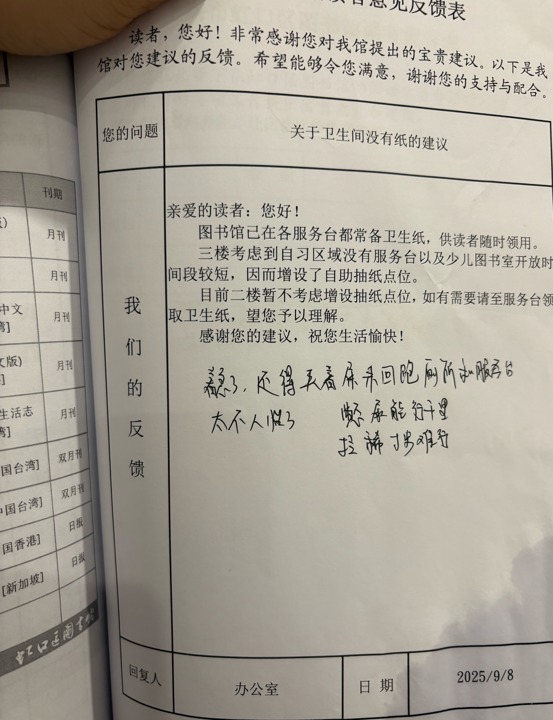 意见反馈表
读者，您好！非常感谢您对我馆提出的宝贵建议。以下是我
馆对您建议的反馈。希望能够令您满意，谢谢您的支持与配合。
您的问题
关于卫生间没有纸的建议
我们的反馈
亲爱的读者：您好！
图书馆已在各服务台都常备卫生纸，供读者随时领用。
三楼考虑到自习区域没有服务台以及少儿图书室开放时
间段较短，因而增设了自助抽纸点位。
目前二楼暂不考虑增设抽纸点位，如有需要请至服务台领
取卫生纸，望您予以理解。
感谢您的建议，祝您生活愉快！
着急了，还得夹着屎来回跑厕所和服务台
太不人性了
憋尿能行千里
拉稀寸步难行
回复人
办公室
日 期
2025/9/8
刊期
月刊
月刊
中文
湾]
月刊
文版)
湾]
月刊
生活志
湾]
月刊
国台湾]
双月刊
中国台湾]
双月刊
国香港]
日报
[新加坡]
日报
虹口区图书馆